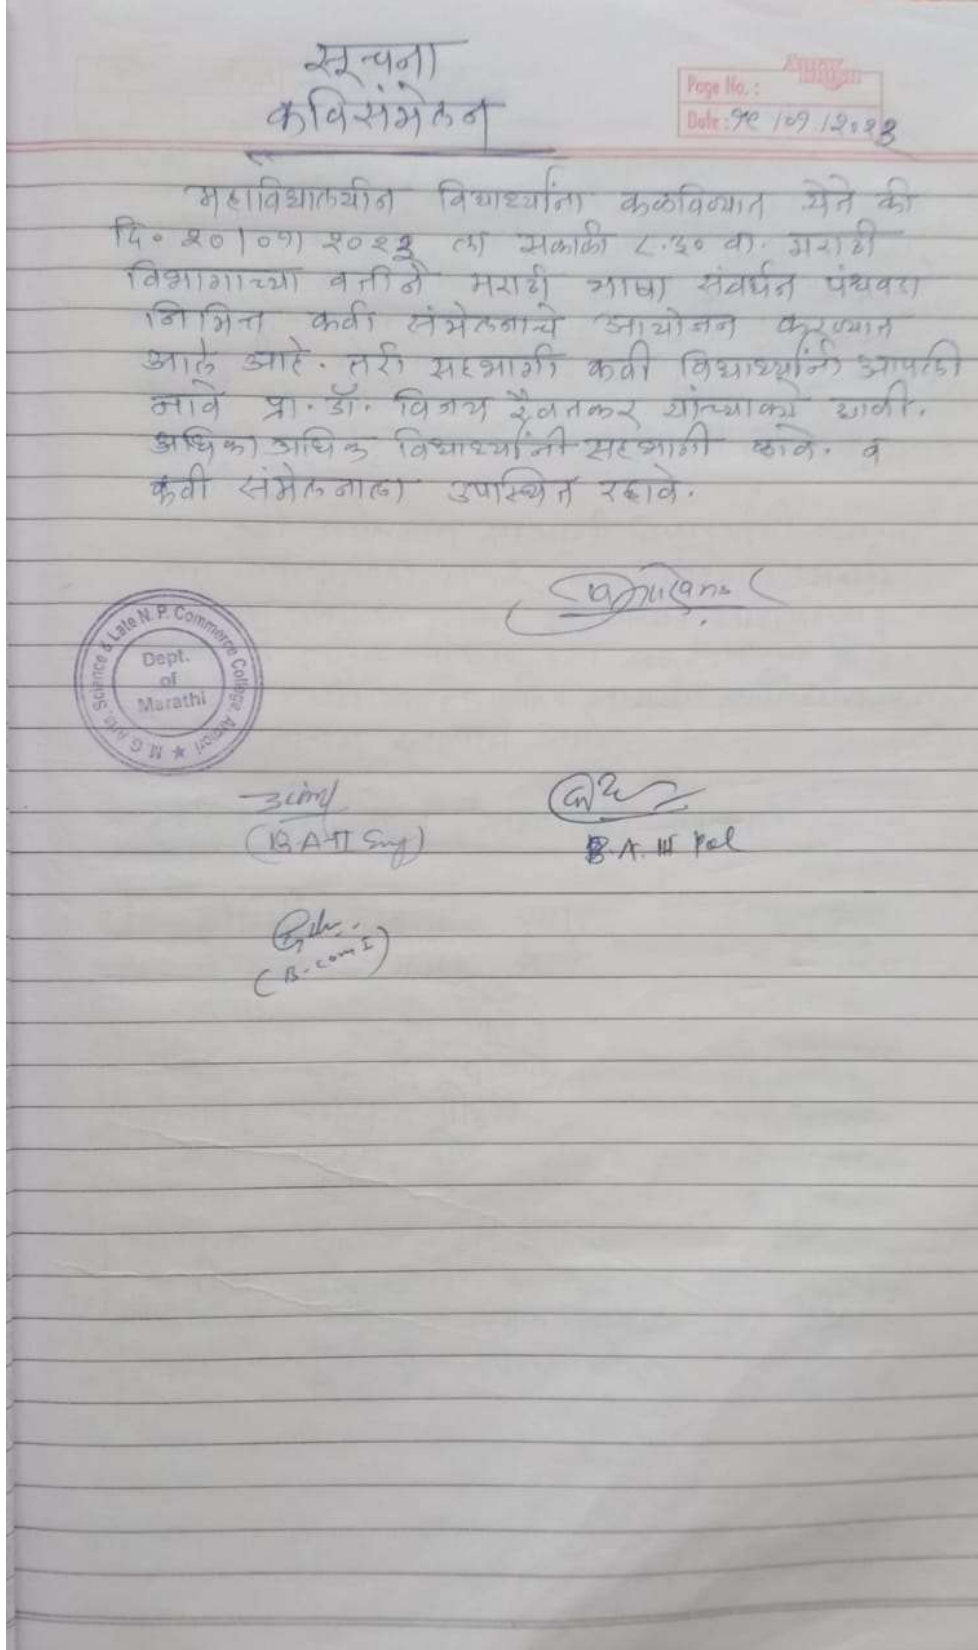 सूचना
कविसंमेलन
Page No.:
Date: १९ /०१ /२०२३
महाविद्यालयीन विद्यार्थ्यांना कळविण्यात येते की
दि. २०/०१/२०२३ ला सकाळी ८.३० वा. मराठी
विभागाच्या वतीने मराठी भाषा संवर्धन पंधवडा
निमित्त कवी संमेलनाचे आयोजन करण्यात
आले आहे. तरी सहभागी कवी विद्यार्थ्यांनी आपली
नावे प्रा. डॉ. विजय रैवतकर यांच्याकडे द्यावी.
अधिका अधिक विद्यार्थ्यांनी सहभागी व्हावे. व
कवी संमेलनाला उपस्थित रहावे.
M.G. Arts, Science & Late N.P. Commerce College, Armori
Dept.
of
Marathi
(B.A-II Eng)
B.A. III Pol
(B-com I)